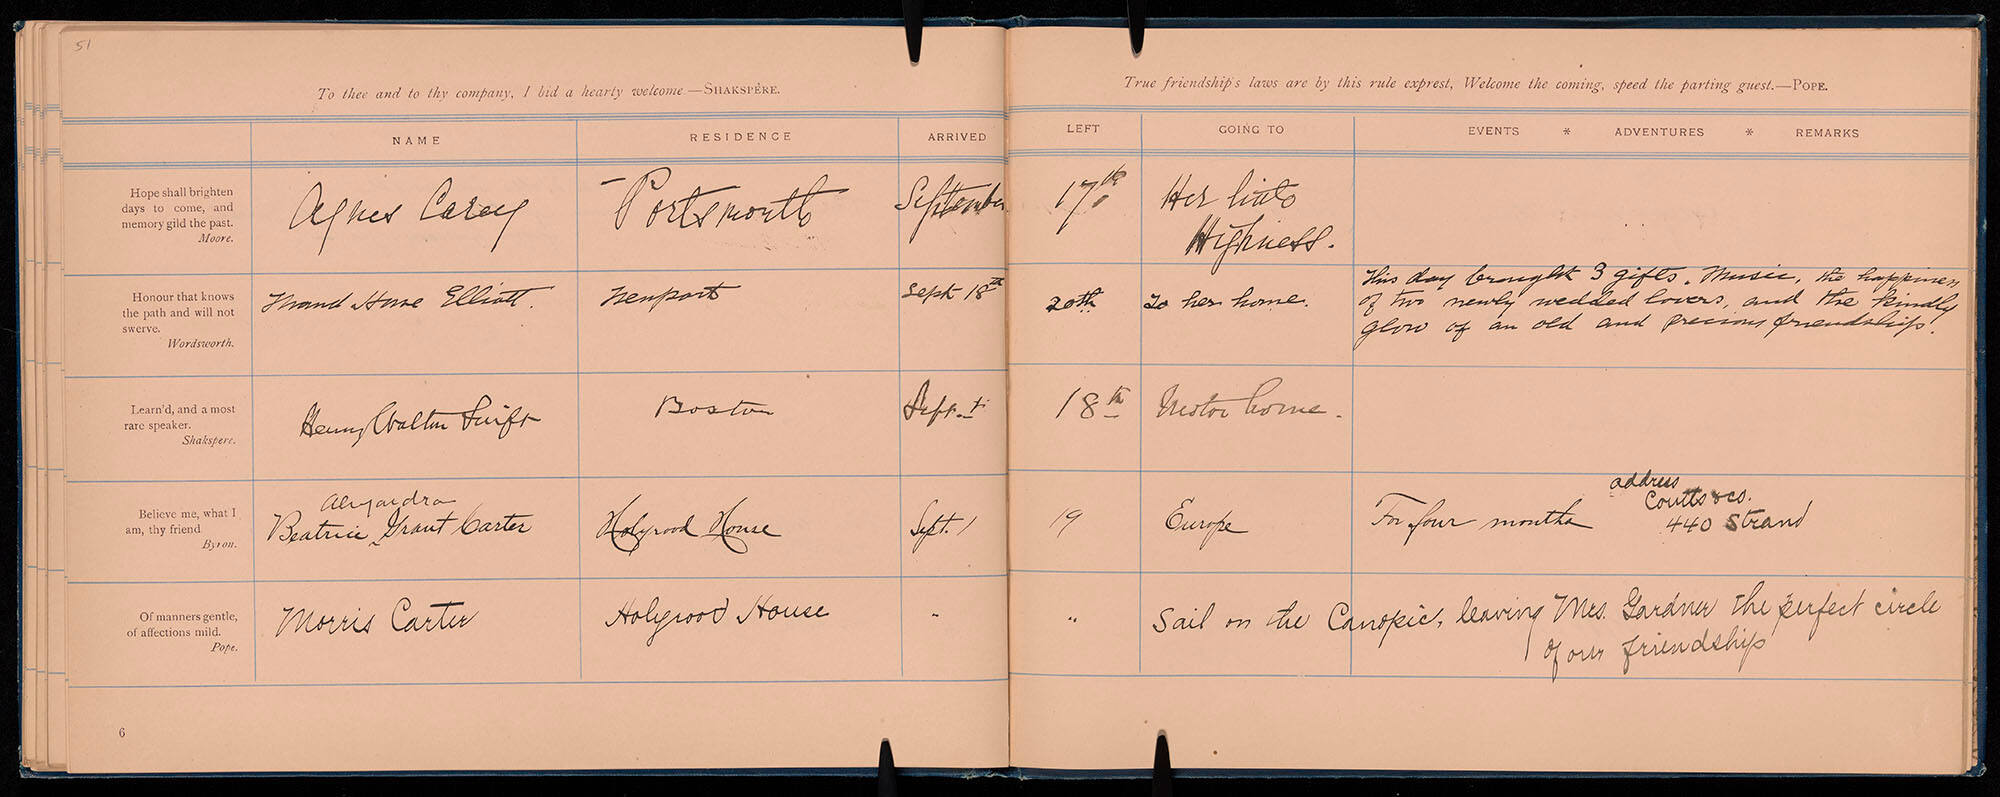 51
To thee and to thy company, I bid a hearty welcome.—SHAKSPÈRE.
NAME RESIDENCE ARRIVED
Hope shall brighten
days to come, and
memory gild the past.
Moore.
Agnes Carey Portsmouth September
Honour that knows
the path and will not
swerve.
Wordsworth.
Maud Howe Elliott. Newport Sept 18th
Learn'd, and a most
rare speaker.
Shakspere.
Henry Walton Swift Boston Sept.
Believe me, what I
am, thy friend
Byron.
Alexandra
Beatrice ‸ Grant Carter Holyrood House Sept. 1
Of manners gentle,
of affections mild.
Pope.
Morris Carter Holyrood House "
6
True friendship's laws are by this rule exprest, Welcome the coming, speed the parting guest.—POPE.
LEFT GOING TO EVENTS * ADVENTURES * REMARKS
17th Her
Highness.
20th To her home.
This day brought 3 gifts. Music, the happiness
of two newly wedded lovers, and the kindly
glow of an old and precious friendship.
18th Motor home.
19 Europe For four months
address
Coutts & co.
440 Strand
" Sail on the Canopic, leaving Mrs. Gardner the perfect circle
of our friendship